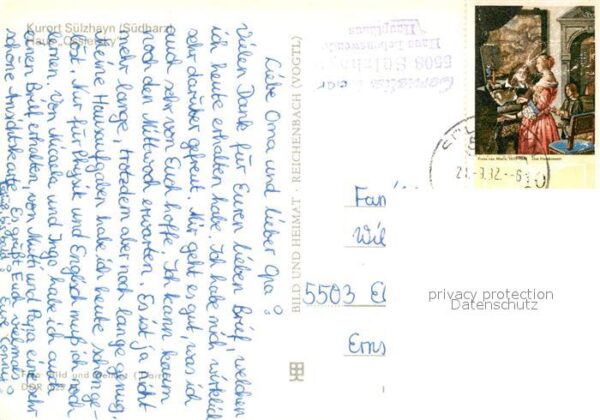 Kurort Sülzhayn (Südharz)
Liebe Oma und lieber Opa!
Vielen Dank für Euren lieben Brief, welchen
ich heute erhalten habe. Ich habe mich wirklich
sehr darüber gefreut. Mir geht es gut, was ich
auch sehr von Euch hoffe. Ich kann kaum
noch den Mittwoch erwarten. Es ist ja nicht
mehr lange, trotzdem aber noch lange genug.
Meine Hausaufgaben habe ich heute schon ge-
löst. Nur für Physik und Englisch muß ich noch
lernen. Von und Ingo habe ich auch
einen Brief erhalten, von Mutti und Papa eine sehr
schöne Ansichtskarte. Es grüßt Euch vielmals
Eure Conny!
Foto: Bild und Heimat
DDR
BILD UND HEIMAT · REICHENBACH (VOGTL)
Cornelia
Haus Lebenswende
Haupthaus
5508 Sülzhayn
Frans van Mieris
21.-9.82.-6
Fam
Wil
5503 El
Erns
privacy protection
Datenschutz